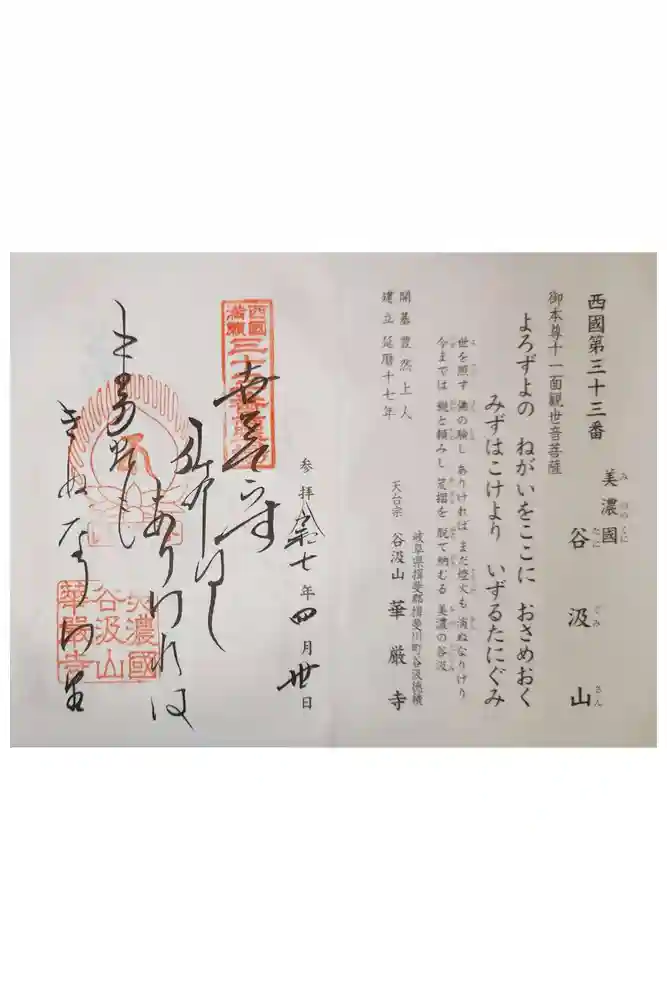 西國第三十三番
美濃國
みののくに
谷汲山
たにぐみさん
御本尊十一面観世音菩薩
よろずよの ねがいをここに おさめおく
みずはこけより いずるたにぐみ
世を照す 佛の験し ありければ まだ燈火も 消ぬなりけり
今までは 親と頼みし 笈摺を 脱て納むる 美濃の谷汲
開基 豊然上人
建立 延暦十七年
岐阜県揖斐郡揖斐川町谷汲徳積
天台宗 谷汲山 華厳寺
参拝 令和七年四月卅日
西國
満願
三十三番霊場
世を照す
仏のしるし
ありければ
まだともしびも
きえぬなりけり
美濃國
谷汲山
華嚴寺